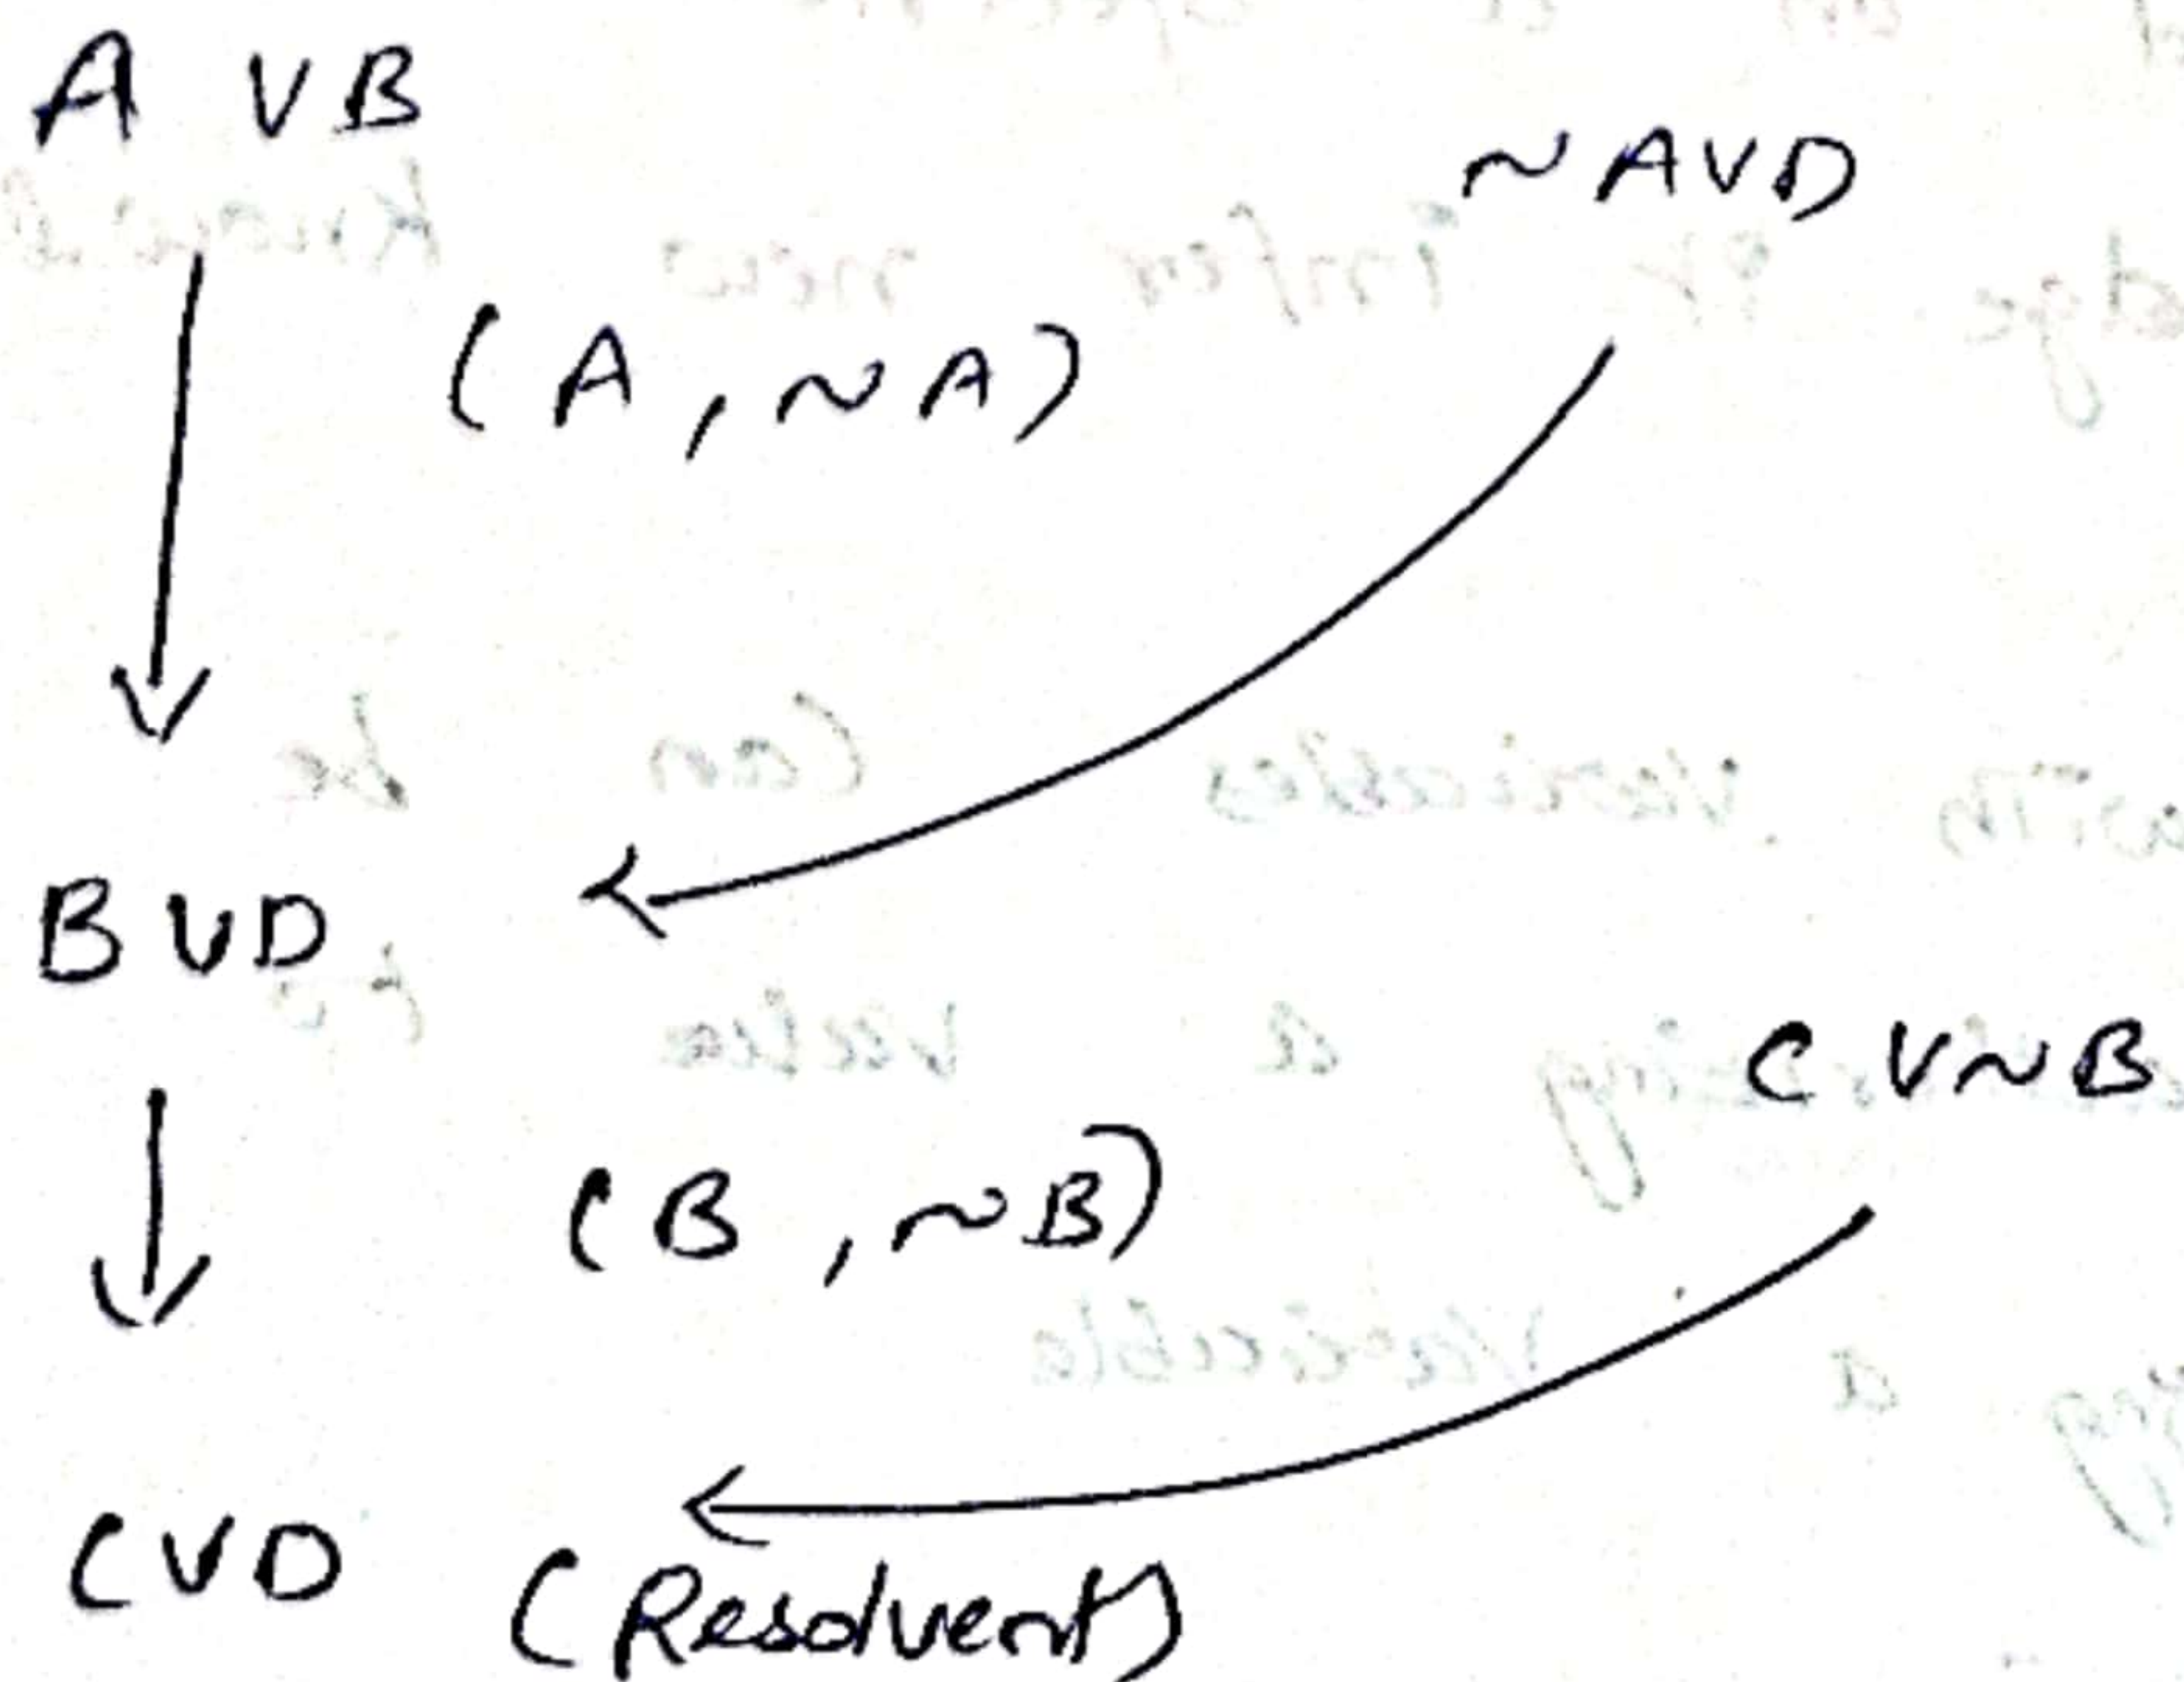 A V B
~ A V D
(A, ~ A)
B V D
C V ~ B
(B, ~ B)
C V D (Resolvent)